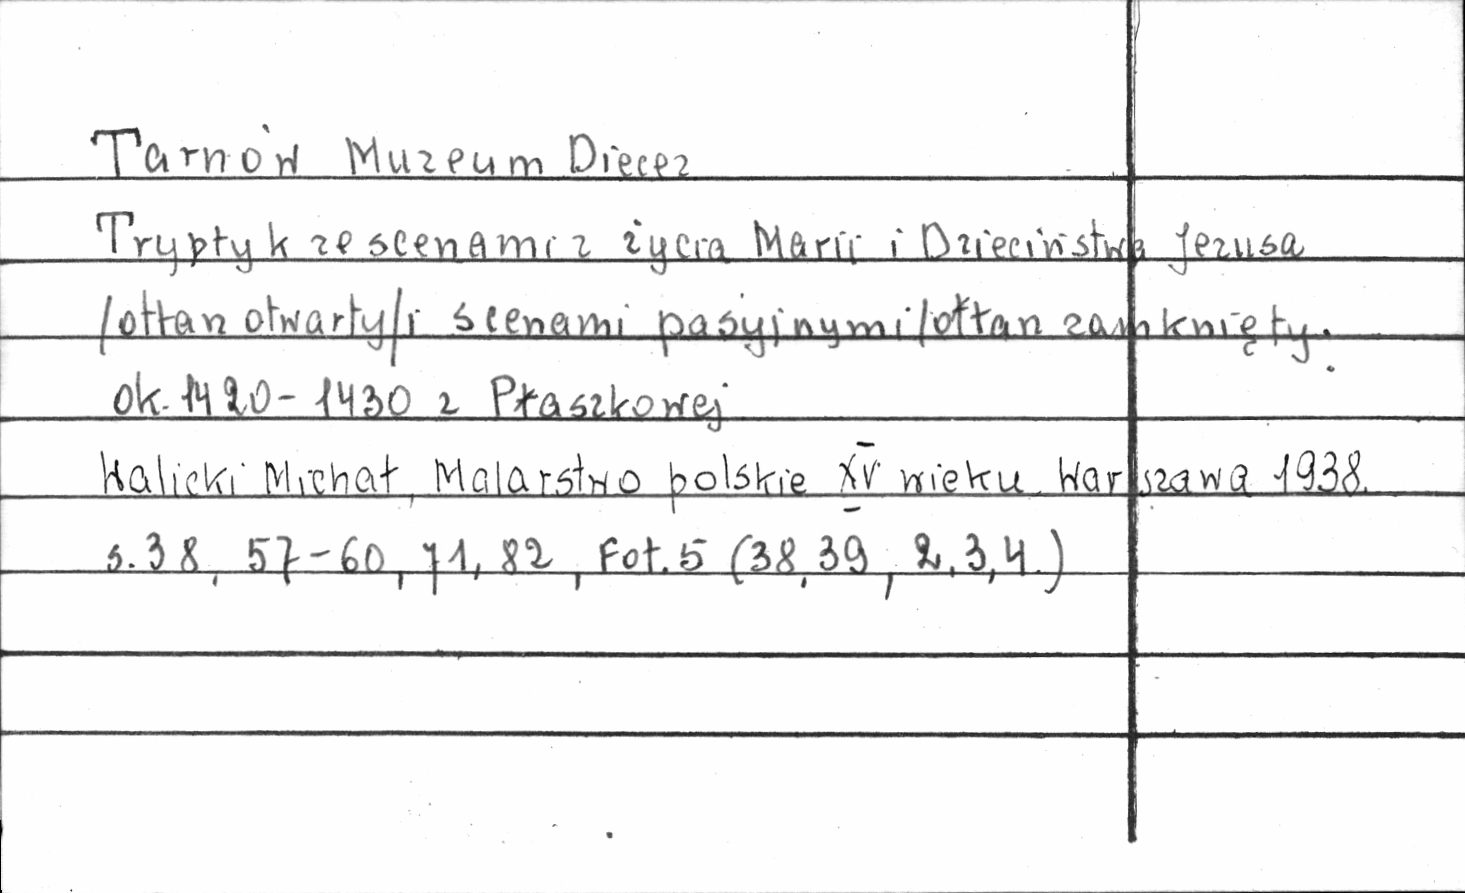 Tarnów Muzeum Diecez
Tryptyk ze scenami z życia Marii i Dzieciństwa Jezusa
/ołtan otwarty/i scenami pasyjnymi/ołtan zamknięty.
ok. 1420-1430 z Ptaszkowej
Walicki Michał, Malarstwo polskie XV wieku Warszawa 1938.
s. 38, 57-60, 71, 82, Fot. 5 (38, 39, 2, 3, 4.)